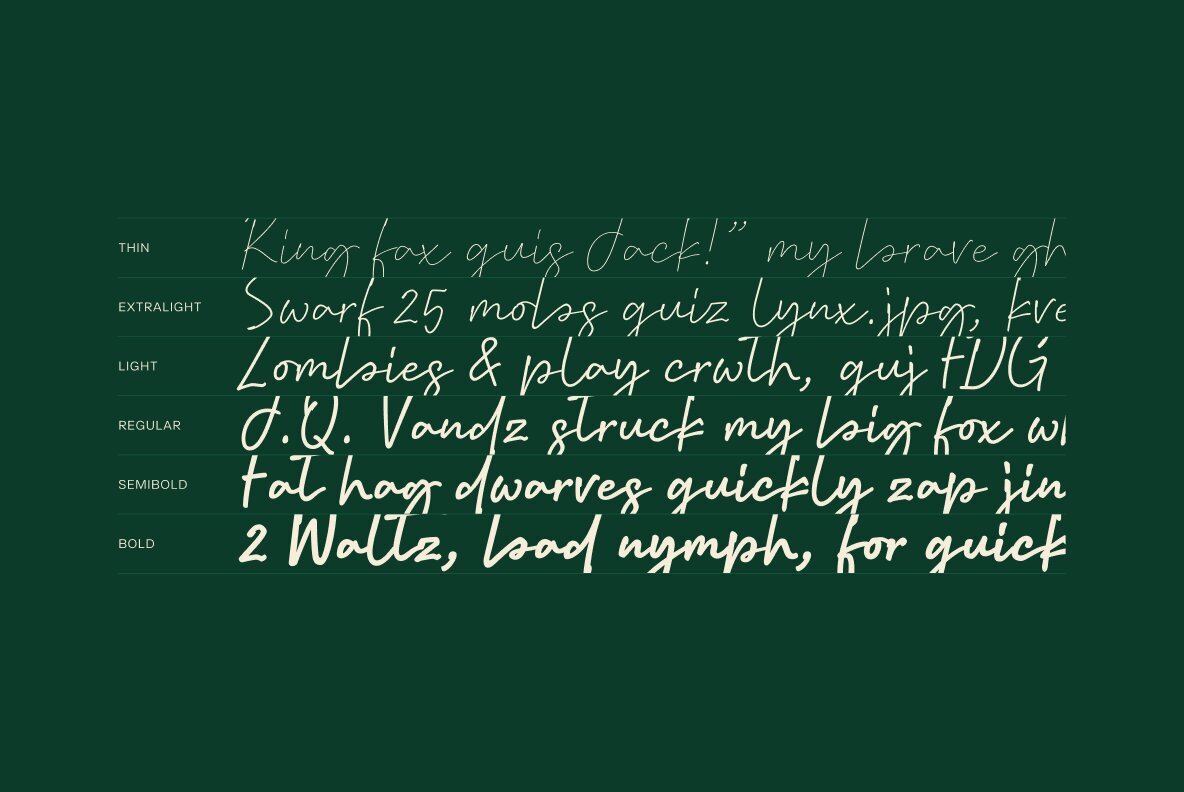 THIN King fox quis Jack!” my brave gh
EXTRALIGHT Swarf 25 mobs quiz lynx.jpg, kve
LIGHT Zombies & play crwth, quj FDG
REGULAR J.Q. Vandz struck my big fox wh
SEMIBOLD Fat hag dwarves quickly zap jin
BOLD 2 Waltz, bad nymph, for quick